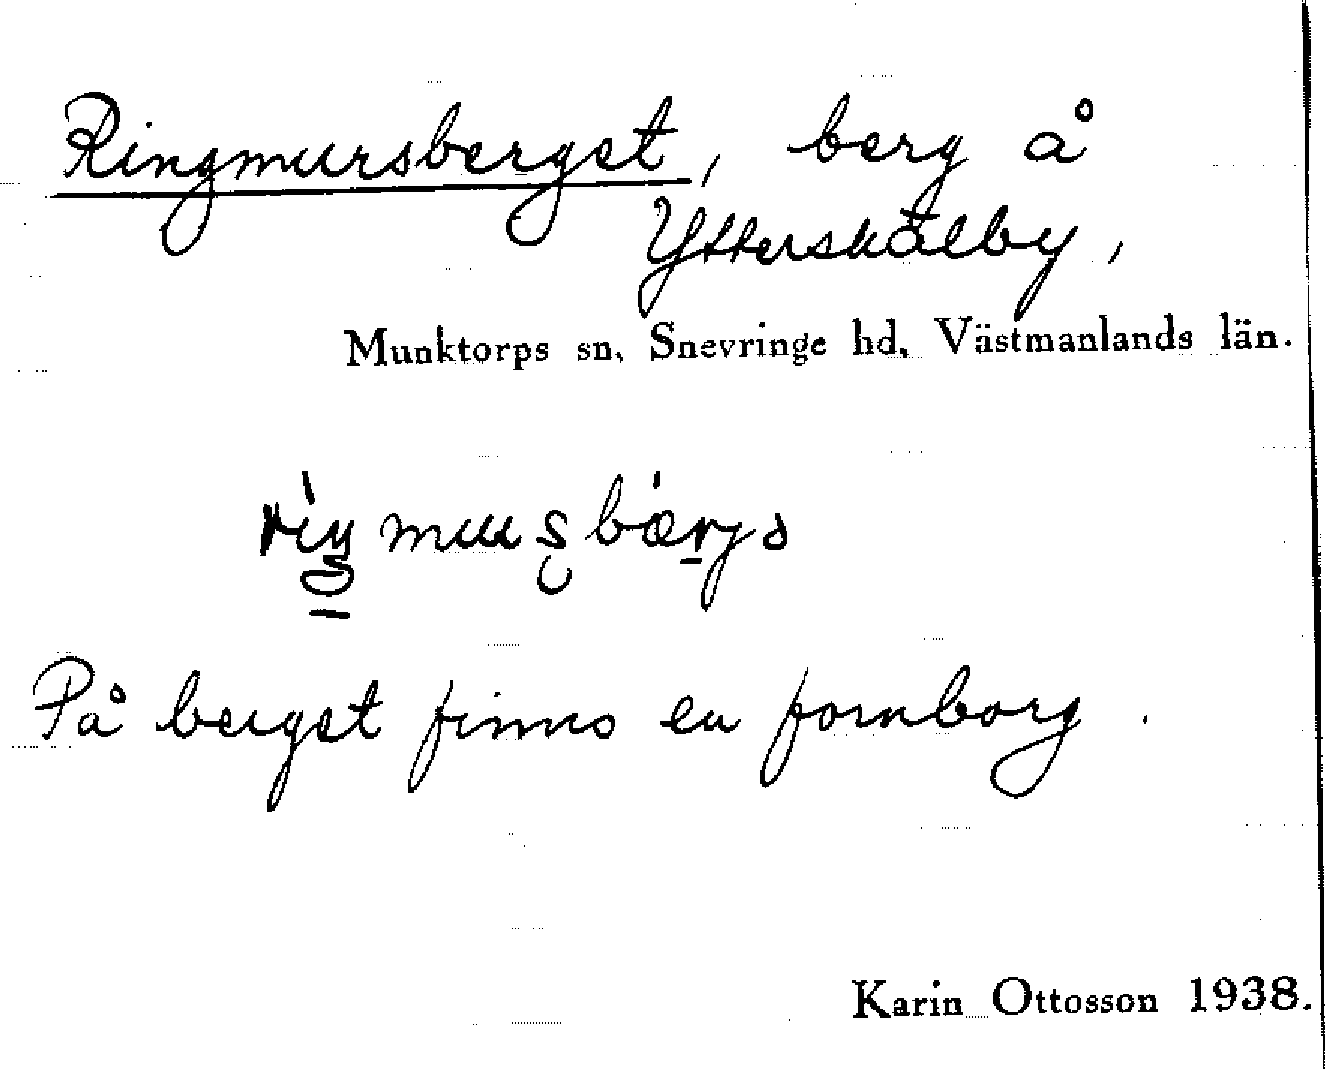 Ringmursberget, berg å
Ytterskälby,
Munktorps sn, Snevringe hd, Västmanlands län.
På berget finns en fornborg.
Karin Ottosson 1938.